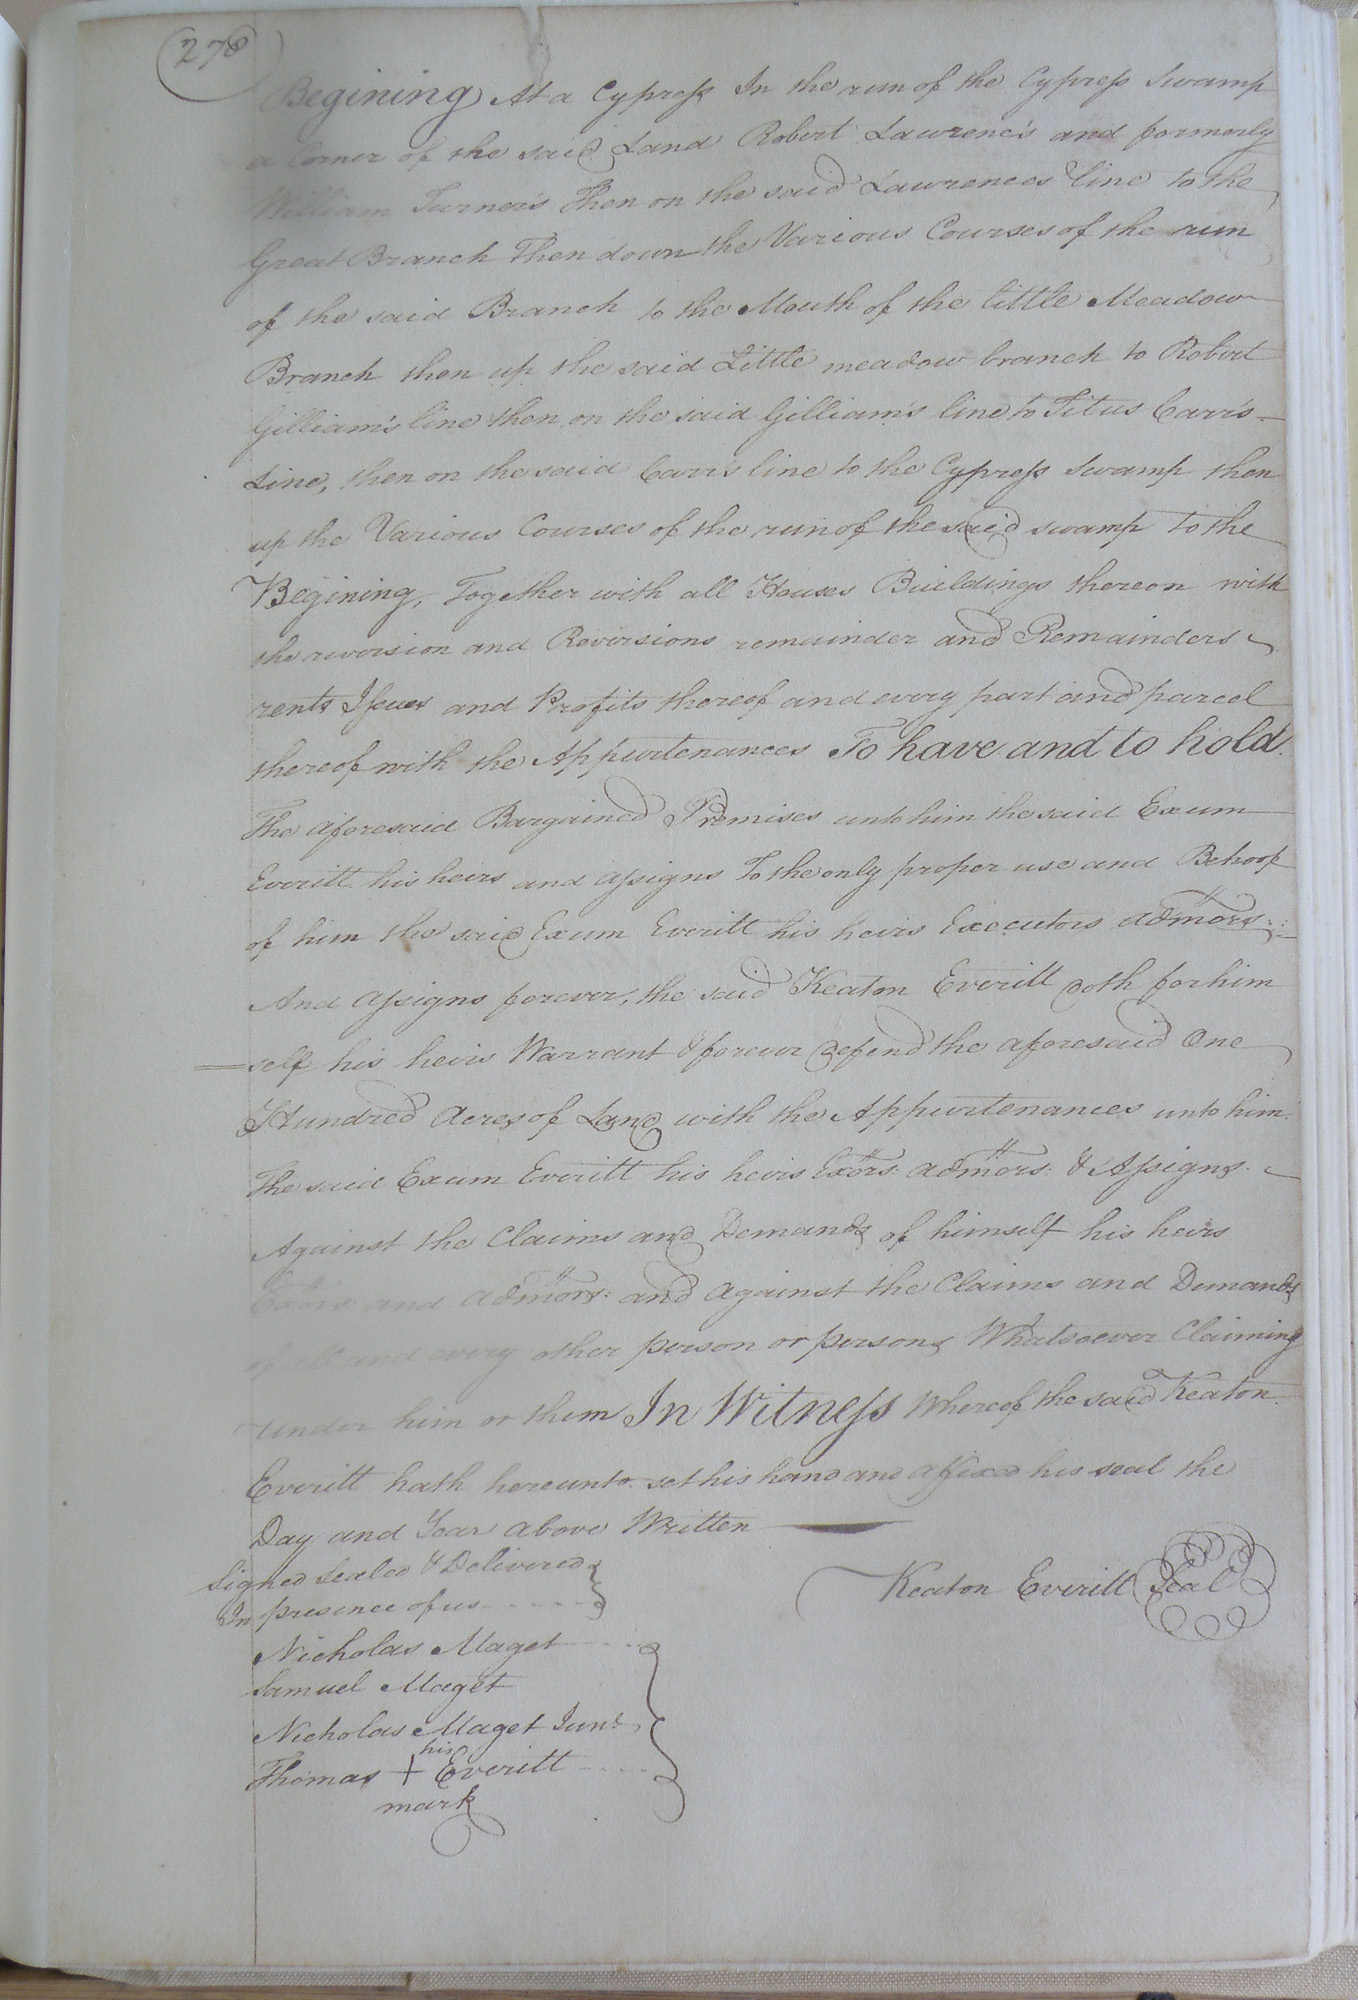 278
Begining At a Cypress In the run of the Cypress Swamp
a Corner of the said Land Robert Lawrence's and formerly
William Turner's Then on the said Lawrences line to the
Great Branch Then down the Various Courses of the run
of the said Branch to the Mouth of the little Meadow
Branch then up the said Little meadow branch to Robert
Gilliam's line then on the said Gilliam's line to Titus Carr's
Line, then on the said Carr's line to the Cypress Swamp then
up the Various Courses of the run of the said swamp to the
Begining, Together with all Houses Buildings thereon with
the reversion and Reversions remainder and Remainders
rents Issues and Profits thereof and every part and parcel
thereof with the Appurtenances To have and to hold.
The aforesaid Bargained Premises unto him the said Exum
Everitt his heirs and assigns To the only proper use and Behoof
of him the said Exum Everitt his heirs Executors admors:
And assigns forever, the said Keaton Everitt doth for him
=self his heirs Warrant & forever defend the aforesaid One
Hundred Acres of Land with the Appurtenances unto him.
The said Exum Everitt his heirs Exors: admors: & Assigns.
Against the Claims and Demands of himself his heirs
Exors: and admors: and against the Claims and Demands
of all and every other person or persons Whatsoever Claiming
under him or them In Witness Whereof the said Keaton
Everitt hath hereunto set his hand and affixed his seal the
Day and Year above Written
Signed Sealed & Delivered
In presence of us
Keaton Everitt Seal
Nicholas Maget
Samuel Maget
Nicholas Maget Junr.
his
Thomas + Everitt
mark